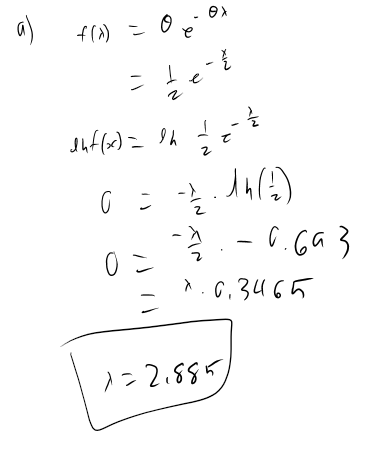 a) f(x) = θ e^{-θx}
= 1/2 e^{-x/2}
ln f(x) = ln 1/2 e^{-x/2}
0 = -x/2 · ln(1/2)
0 = -x/2 · -0.693
= x · 0.3465
x = 2.885